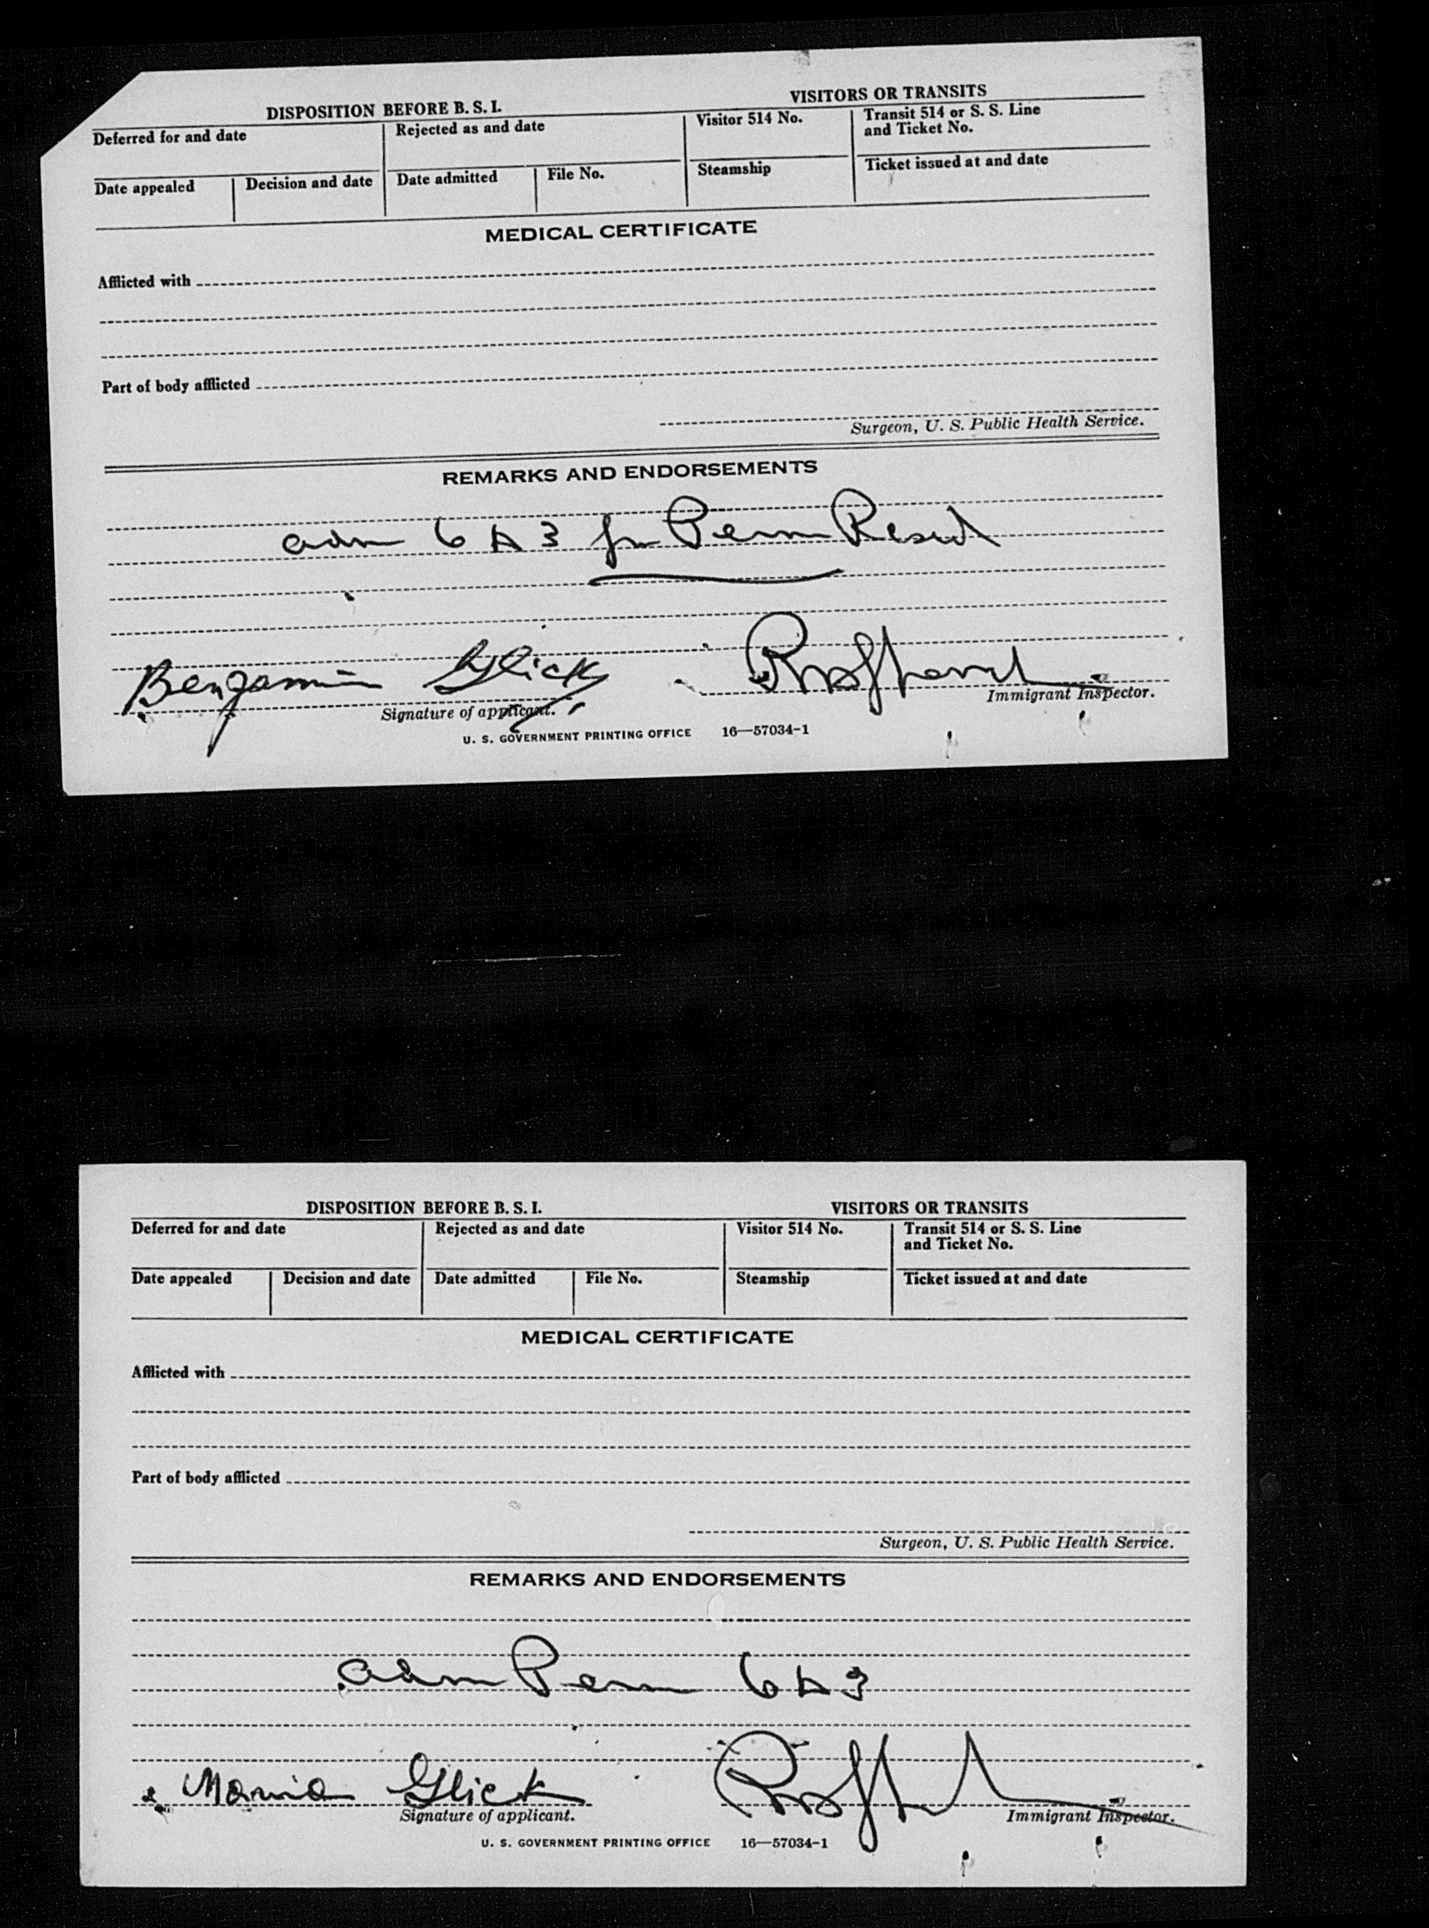 DISPOSITION BEFORE B. S. I.
VISITORS OR TRANSITS
Deferred for and date
Rejected as and date
Visitor 514 No.
Transit 514 or S. S. Line
and Ticket No.
Date appealed
Decision and date
Date admitted
File No.
Steamship
Ticket issued at and date
MEDICAL CERTIFICATE
Afflicted with
Part of body afflicted
Surgeon, U. S. Public Health Service.
REMARKS AND ENDORSEMENTS
adm 6 A 3 for Perm Resid
Benjamin Glick
Signature of applicant.
Immigrant Inspector.
U. S. GOVERNMENT PRINTING OFFICE 16—57034-1
DISPOSITION BEFORE B. S. I.
VISITORS OR TRANSITS
Deferred for and date
Rejected as and date
Visitor 514 No.
Transit 514 or S. S. Line
and Ticket No.
Date appealed
Decision and date
Date admitted
File No.
Steamship
Ticket issued at and date
MEDICAL CERTIFICATE
Afflicted with
Part of body afflicted
Surgeon, U. S. Public Health Service.
REMARKS AND ENDORSEMENTS
adm Perm 6 A 3
Glick
Signature of applicant.
Immigrant Inspector.
U. S. GOVERNMENT PRINTING OFFICE 16—57034-1